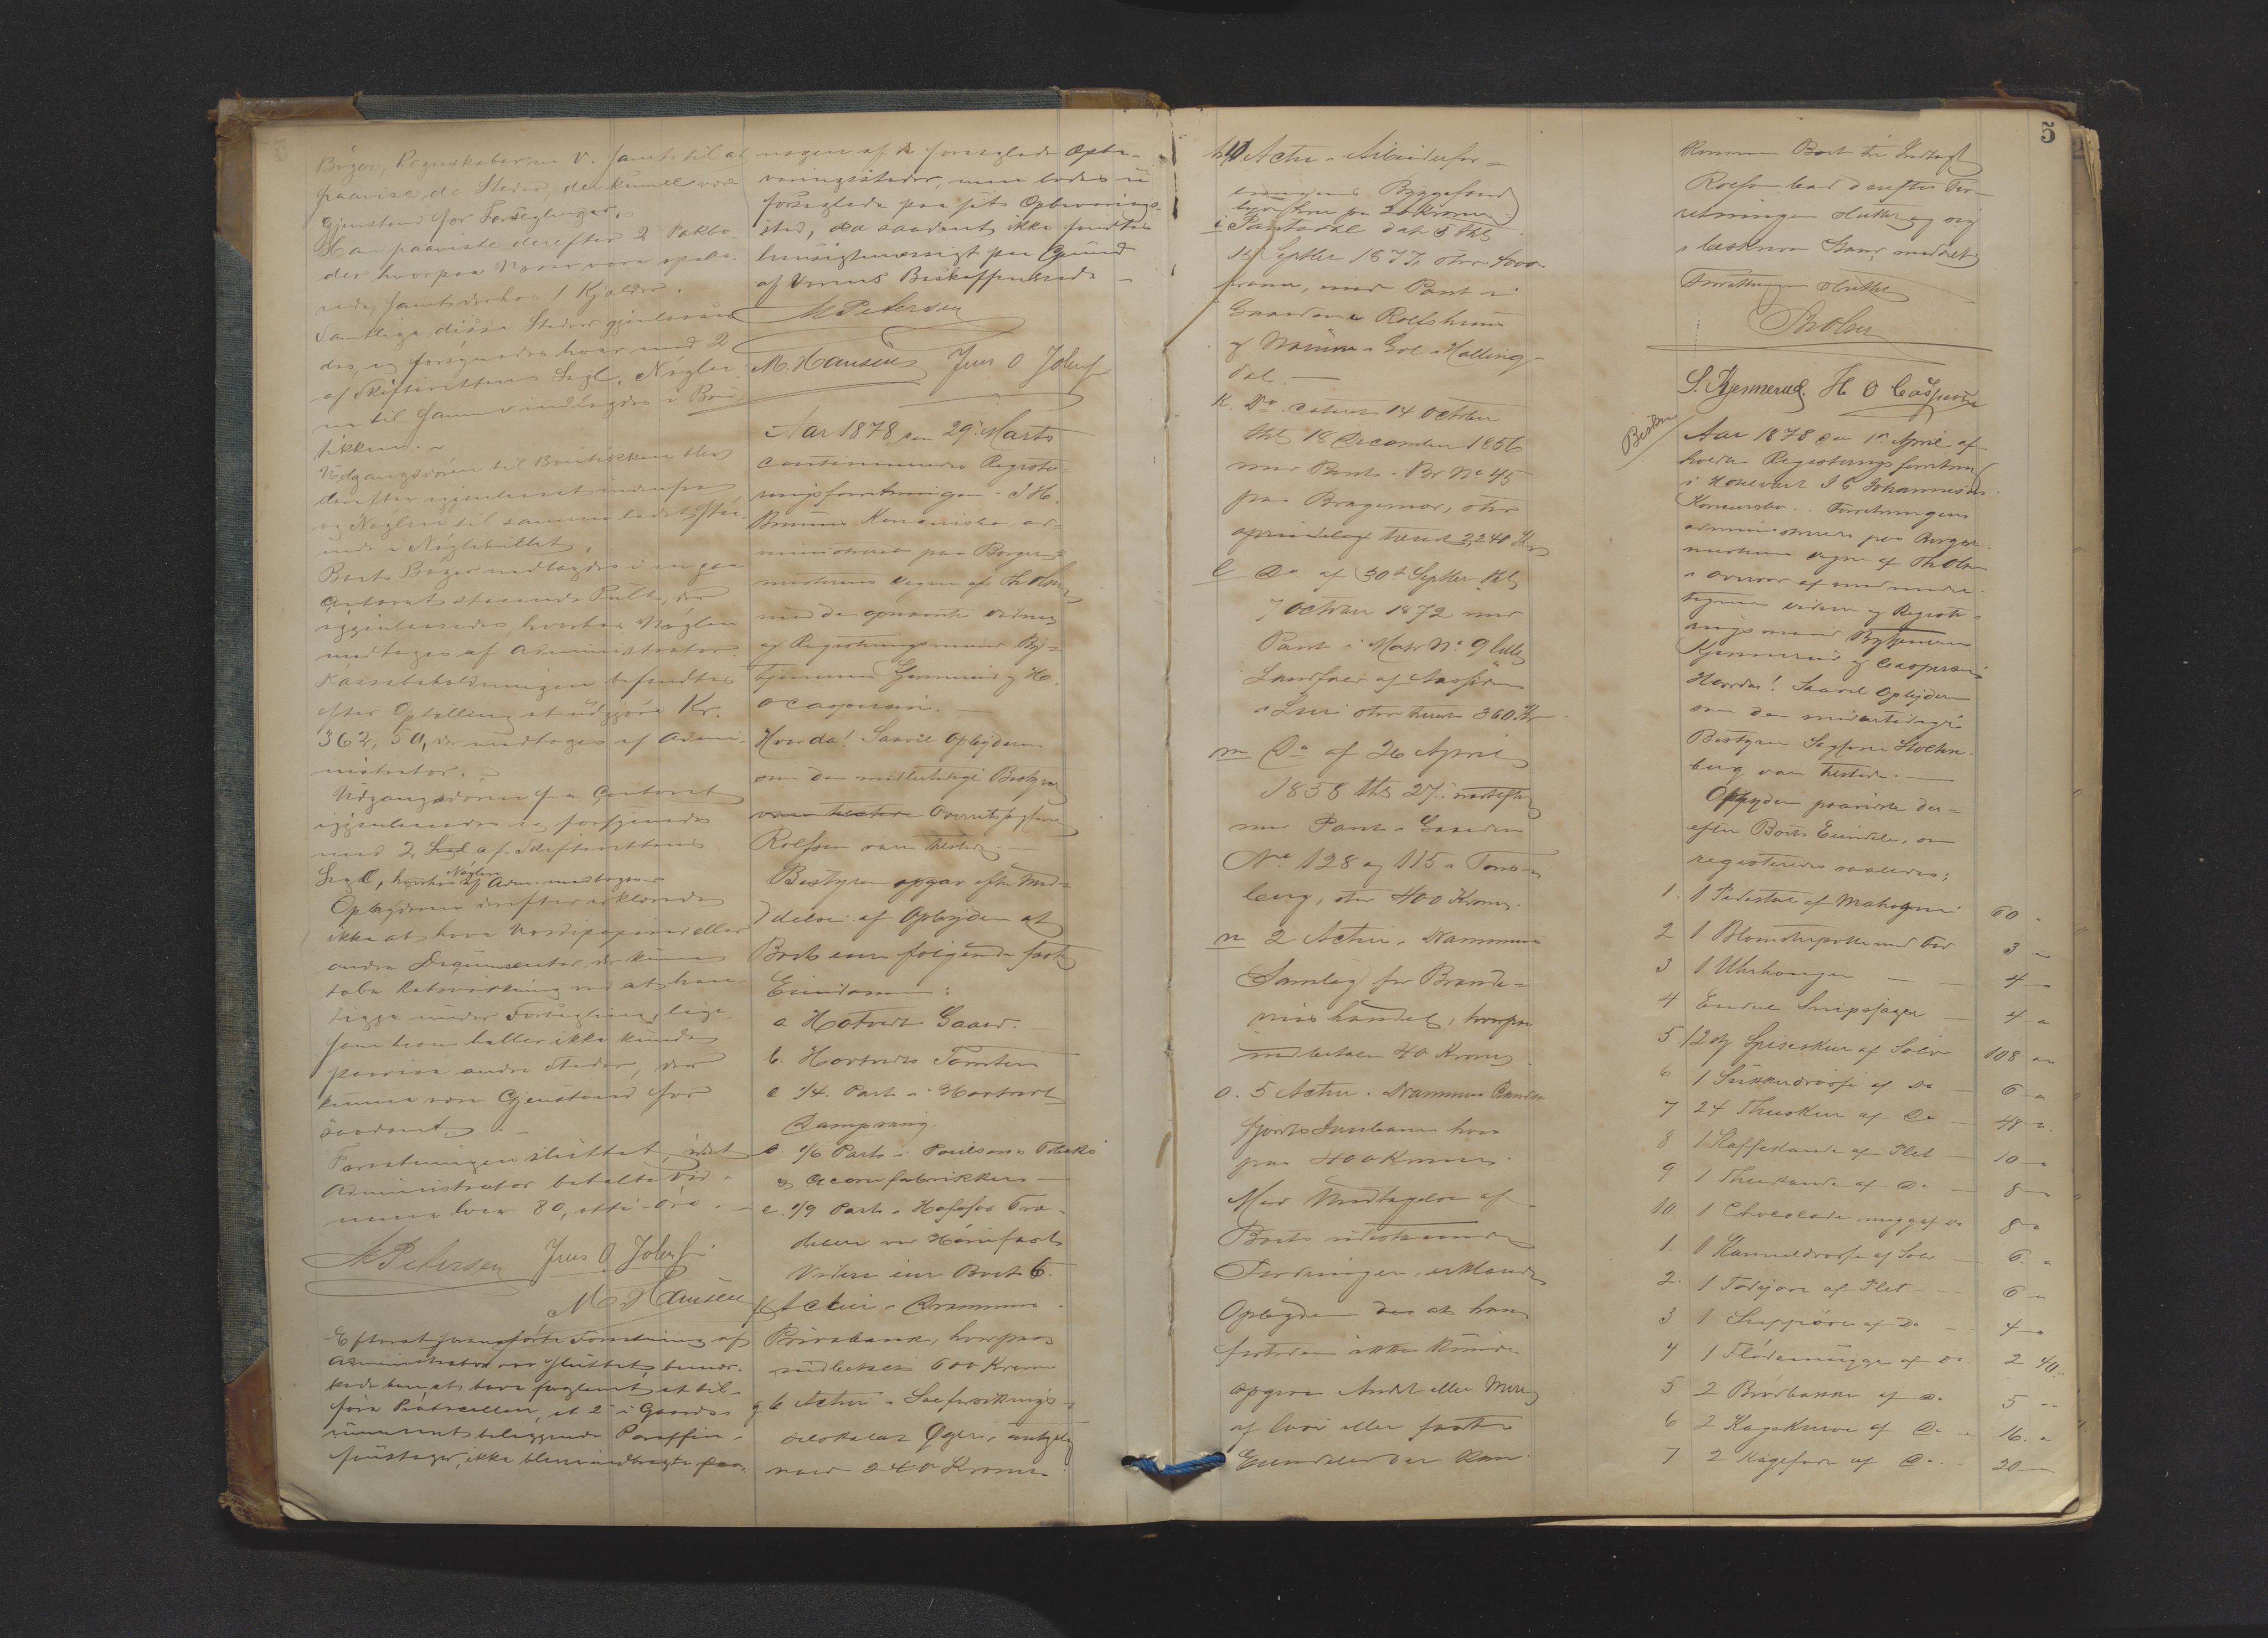 Bøger, Regnskaber m. V. samt til at
paavise de Steder, der kunde være
Gjenstand for Forseglinger.
Han paaviste derefter 2 Pakbo-
der hvorpaa Varer vare opsta-
samt derhos 1 Kjælder.
Samtlige disse Steder gjenlaase-
des, og forsynedes hver med 2
af Skifterettens Segl, Nøgler
til samme indlagdes i Bou-
tikken.
Udgangsdøren til Boutikken blev
derefter igjenlaaset indenfra
og Nøglen til samme
i Nøglehullet.
Boets Bøger nedlagdes i en paa
Contoret staaende Pult, der
igjenlaasedes, hvorhos Nøglen
modtoges af Administrator.
Kassebeholdningen befandtes
efter Optælling at udgjøre Kr.
362,50, der modtoges af Admi-
nistrator.
Udgangsdøren fra Contoret
igjenlaasedes og forsynedes
med 2 Segl af Skifterettens
Segl, hvorhos Nøglen af Adm. modtoges
Opbyderen derefter erklærede
ikke at have Værdipapirer eller
andre Documenter, der kunne
tabe Retsvirkning ved at hen-
ligge under Forsegling, lige-
som han heller ikke kunde
paavise andre Steder, der
kunne være Gjenstand for
saadant.
Forretningen sluttet, idet
Administrator betalte Vid-
nerne hver 80, otti Øre.
M Petersen Jens O Johnsen
M. Hansen
Efterat foranførte Forretning af
Administrator var sluttet, bemær-
kede han at have forglemt at til-
føre Protocollen, at 2 i Gaards-
rummet beliggende Paraffin-
foustager, ikke bleve indbragte paa
nogen af de forseglede Opbe-
varingssteder, men lodes u-
forseglede paa sit Opbevarings-
sted, da saadant ikke fandtes
hensigtsmæssigt paa Grund
af Varens Beskaffenhed.
M Petersen
M. Hansen Jens O Johnsen
Aar 1878 den 29. Marts
continueredes Registe-
ringsforretningen i J H.
Bruuns Concursbo, ad-
ministreret paa Borger-
mesterens Vegne af Th Olsen
med de opnævnte Vidner
og Registreringsmænd By-
tjenerne Gjennerud og H.
O Caspersen.
Hvorda! Saavel Opbyderen
som den midlertidige Bestyrer
vare tilstede Overretssagfører
Rolfsen vare tilstede.
Bestyreren opgav efter Med-
delelse af Opbyderen at
Boet eier følgende faste
Eiendomme:
a Hotvedt Gaard.
b. Hotvedts Tomten
c 1/4. Part i Hotvedt
Dampsaug.
d. 1/6 Part i Poulsons Tobaks
e. 1/9 Part i Hofsfos Træ-
sliberi ved Hønefoss
Videre eier Boet 6.
f Actier i Drammens
Privatbank, hvorpaa
indbetalt 600 Kroner
g 6 Actier i
240 Kroner
h 10 Actier i Arbeiderfor-
eningens Byggefond
hver paa 20 Kroner.
i Pantobl dat 5 thl
14 Septbr 1877, stor 4000
Kroner, med Pant i
Gaardene Rolfshuus
og i Gol i Halling-
dal.
k. Do. dateret 14 October
thl 18 December 1856
med Pant i Br No 45
paa Bragernæs, stor
oprindelig trend 2,240 Kr
l Do af 30t Septbr thl
7 October 1872 med
Pant i Matr No 9 lille
Landfald af Aasiden
i Lier stor trend 360 Kr
m Do af 26 April
1858 thl 27. næstefter
med Pant i Gaarden
No 128 og 115 i Tøns-
berg, stor 400 Kroner.
n 2 Actier i Drammens
Samlag for Brænde-
viinshandel, hvorpaa
indbetalt 40 Kroner.
o. 5 Actier i Drammens Rands-
fjords Jernbane hver
paa 400 Kroner.
Med Undtagelse af
Boets udestaaende
Fordringer, erklærede
Opbyderen des at han
fortiden ikke kunde
opgive Andet eller Mere
af løse eller faste
Eiendele der kan
5
komme Boet til Indtægt
Rolfsen bad derefter For-
retningen sluttet og sig
Forretningen sluttet
Th Olsen
S. Kjennerud. H O Caspersen
Aar 1878 den 1. April af-
holdtes Registeringsforretning
i J C Johannesens
Konkursbo. Forretningen
administreres paa Borger-
mesterens Vegne af Th Olsen
i Overvær af med under-
tegnede Vidner og Registe-
ringsmænd Bytjenerne
Kjennerud og Caspersen
Hvorda! Saavel Opbyderen
som den midlertidige
Bestyrer Sagfører Stoltenberg
vare tilstede.
Opbyderen paaviste der-
efter Boets Eiendele, som
registreredes saaledes:
1. 1 Pidestal af Mahogni 60 "
2 1 Blomsterpotte med Fod 3 "
3 1 Uhrhænger 4 "
4 Endeel Snipsfager 4 "
5 12 St Spiseskeer af Sølv 108 "
6 1 Sukkerdaase af Do 6 "
7 24 Theeskeer af Do 48 "
8 1 Kaffekande af Plet 10 "
9 1 Theekande af Do 8 "
10 1 Chocolademugge af Do 8 "
1. 1 Kanneeldaase af Sølv 6 "
2. 1 af Plet 6 "
3 1 af Do 4 "
4 1 Flødemugge af Do 2 40
5 2 Brødbakker af Do 5 "
6 2 Kagekurve af Do 16. "
7 2 Kagefade af Do 20 "